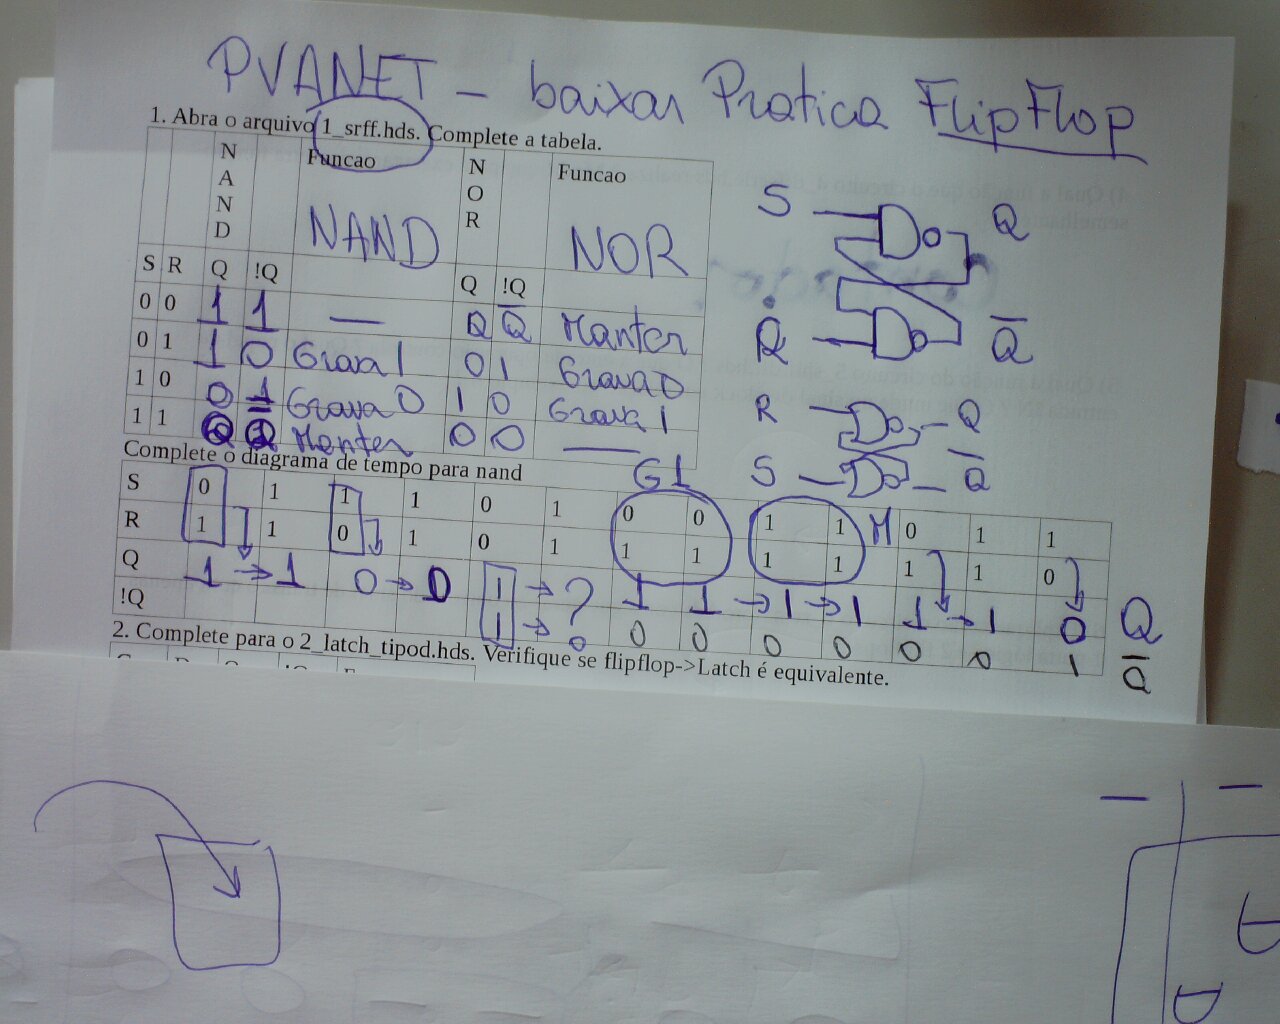 PVANET - baixar Pratica FlipFlop
1. Abra o arquivo 1_srff.hds. Complete a tabela.
NAND Funcao NOR Funcao
NAND NOR
S R Q !Q Q !Q
0 0 1 1 — Q Q̅ Manter
0 1 1 0 Grava 1 0 1 Grava 0
1 0 0 1 Grava 0 1 0 Grava 1
1 1 Q Q̅ Manter 0 0 —
S Q
R Q̅
R Q
S Q̅
Complete o diagrama de tempo para nand
G1
S 0 1 1 1 0 1 0 0 1 1 M 0 1 1
R 1 1 0 1 0 1 1 1 1 1 1 1 0
Q 1 → 1 0 → 0 1 → ? 1 1 → 1 → 1 1 → 1 0 Q
!Q 1 → 0 0 0 0 0 0 1 Q̅
2. Complete para o 2_latch_tipod.hds. Verifique se flipflop->Latch é equivalente.
D